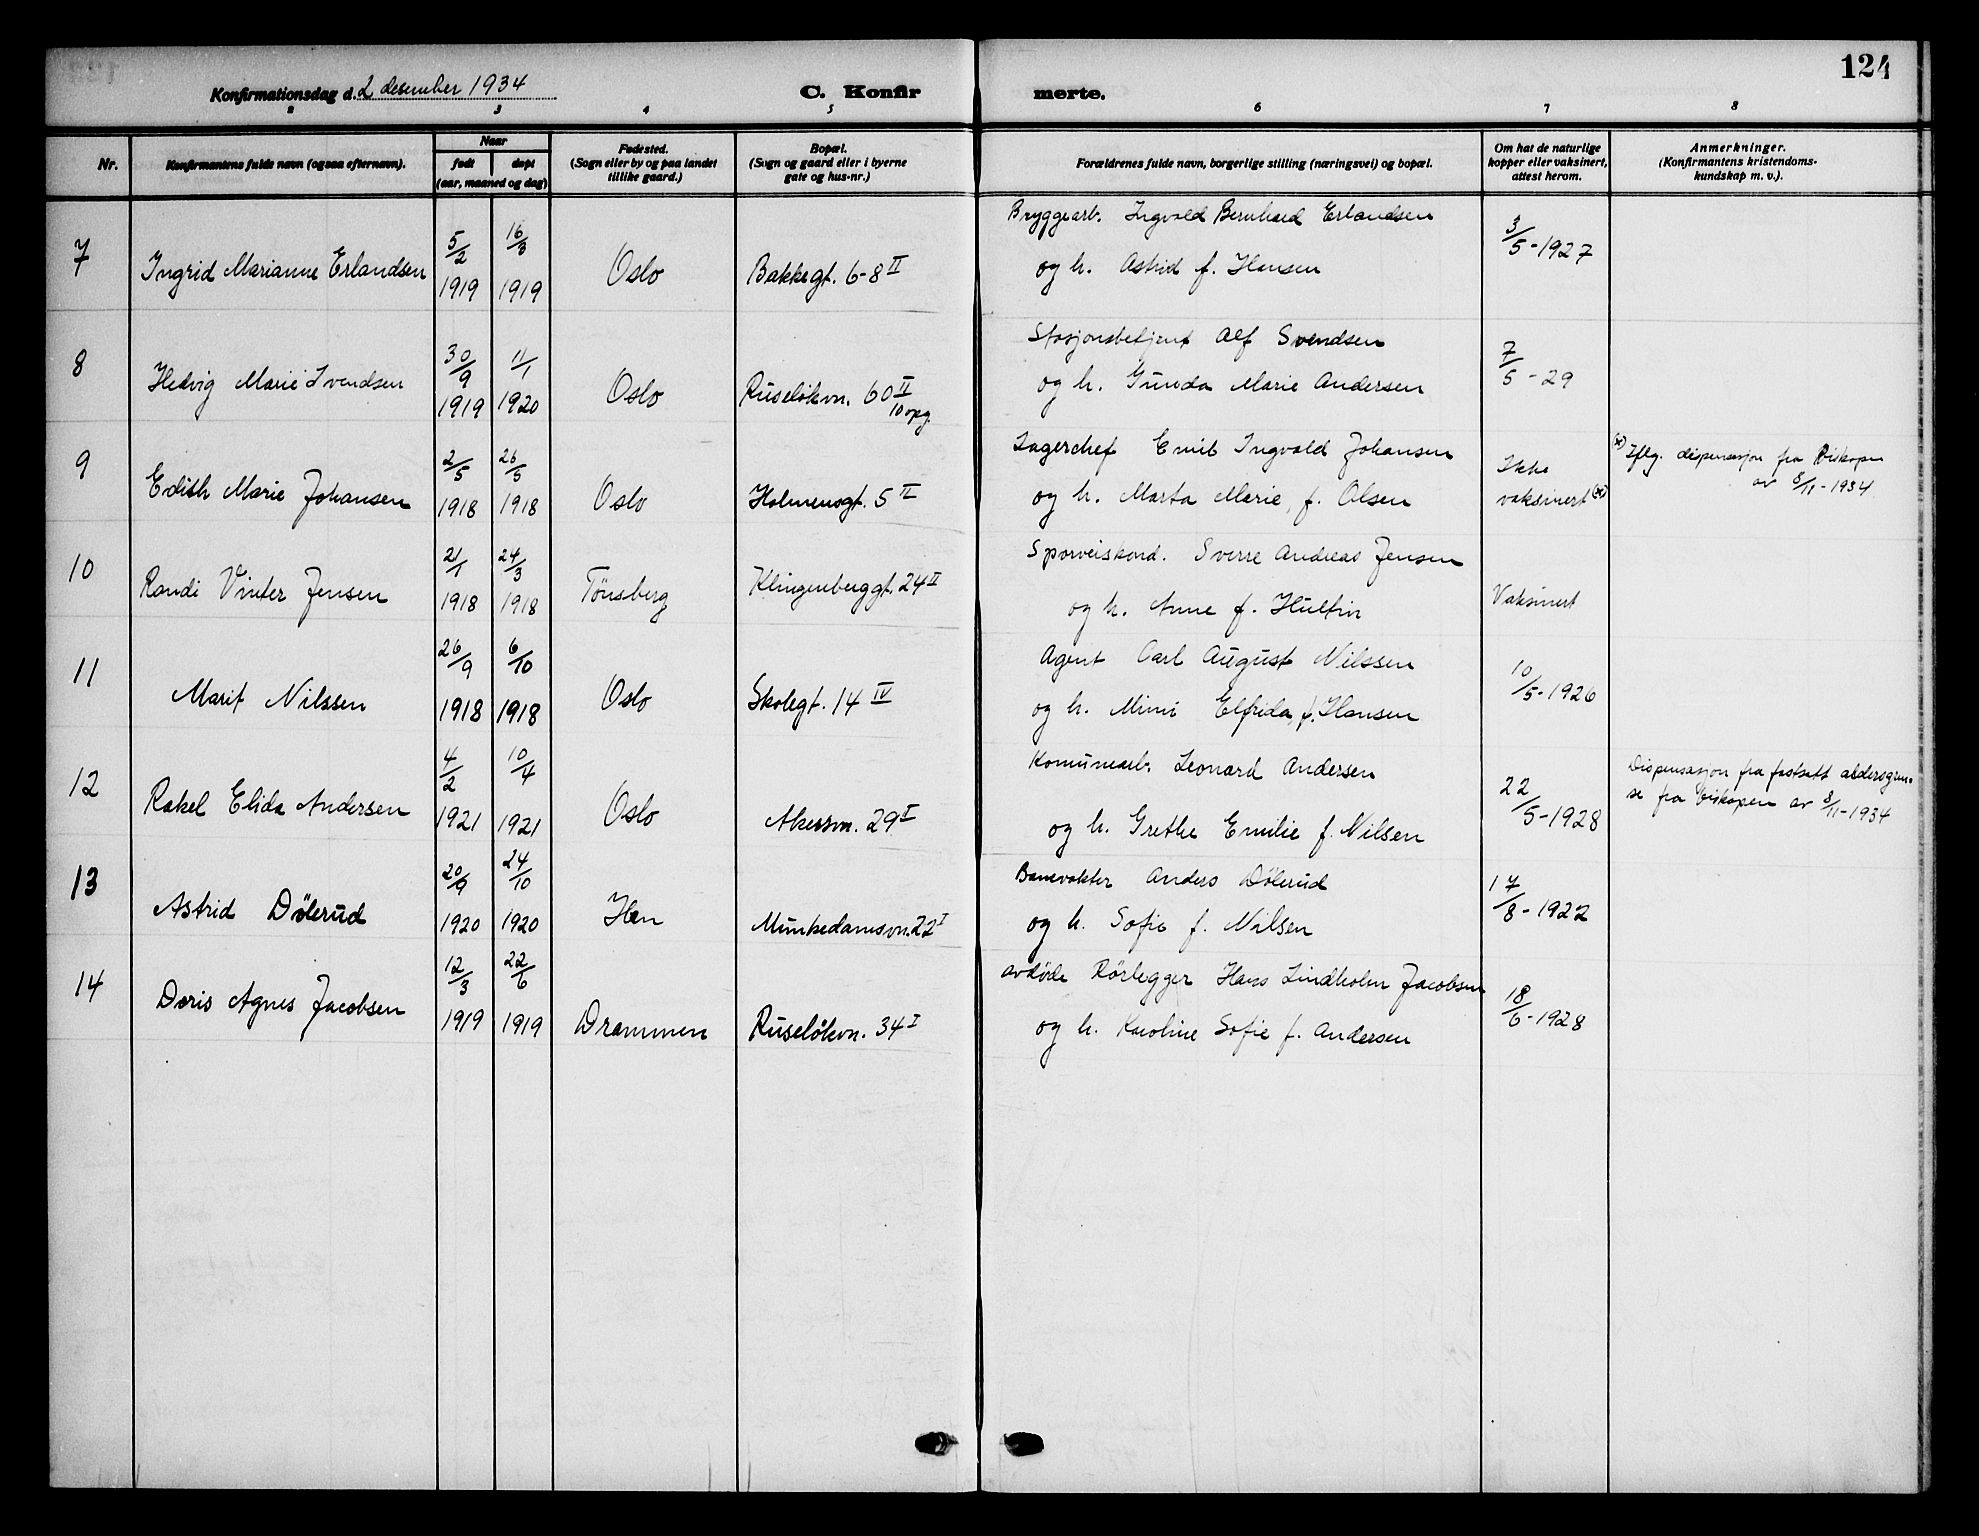 124
Konfirmationsdag d. 2 desember 1934 C. Konfirmerte.
2 3 4 5 6 7 8
Nr. Konfirmantens fulde navn (ogsaa efternavn). Naar Fødested. Bopæl. Forældrenes fulde navn, borgerlige stilling (næringsvei) og bopæl. Om hat de naturlige Anmerkninger.
født døpt (Sogn eller by og paa landet (Sogn og gaard eller i byerne kopper eller vaksinert, (Konfirmantens kristendoms-
(aar, maaned og dag) tillike gaard.) gate og hus-nr.) attest herom. kundskap m. v.).
7 5/2 16/3 Bryggearb. Ingvald Bernhard Erlandsen 3/5-1927
Ingrid Marianne Erlandsen 1919 1919 Oslo Bakkegt. 6-8 II og h. Astrid f. Hansen
8 30/9 11/1 Stasjonsbetjent Alf Svendsen 7/5-29
Hedvig Marie Svendsen 1919 1920 Oslo Ruseløkvn. 60 II og h. Gunda Marie Andersen
10 opg.
9 2/5 26/5 Lagerchef Emil Ingvald Johansen Ikke (x) Iflg. dispensasjon fra Biskopen
Edith Marie Johansen 1918 1918 Oslo Holmensgt. 5 II og h. Marta Marie, f. Olsen vaksinert (x) av 8/11-1934
10 21/1 24/3 Sporveiskond. Sverre Andreas Jensen
Randi Vinter Jensen 1918 1918 Tønsberg Klingenberggt. 24 II og h. Anne f. Hultin Vaksinert
11 26/9 6/10 Agent Carl August Nilssen 10/5-1926
Marit Nilssen 1918 1918 Oslo Skolegt. 14 IV og h. Mimi Elfrida, f. Hansen
12 4/2 10/4 Komunearb. Leonard Andersen 22/5-1928 Dispensasjon fra fastsatt aldersgren-
Rakel Elida Andersen 1921 1921 Oslo Akersvn. 29 I og h. Grethe Emilie f. Nilsen se fra biskopen av 8/11-1934
13 20/9 24/10 Banevakter Anders Dölerud 17/8-1922
Astrid Dölerud 1920 1920 Hen Munkedamsvn. 22 I og h. Sofie f. Nilsen
14 12/3 22/6 avdøde Rörlegger Hans Lindholm Jacobsen 18/6-1928
Doris Agnes Jacobsen 1919 1919 Drammen Ruseløkvn. 34 I og h. Karoline Sofie f. Andersen